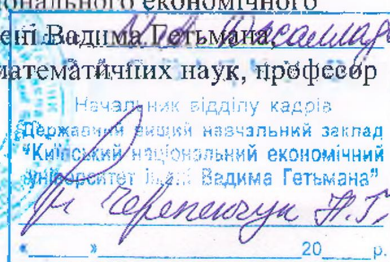 ціонального економічного
імені Вадима Гетьмана
математичних наук, професор
Начальник відділу кадрів
Державний вищий навчальний заклад
"Київський національний економічний
університет імені Вадима Гетьмана"
"____"____20__р.